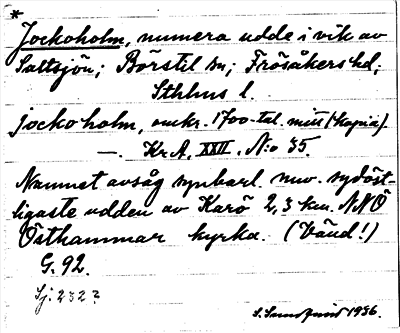 *
Jockoholm, numera udde i vik av
Saltsjön; Börstil sn; Frösåkers hd;
Sthlms l.
jockoholm, omkr. 1700-tal. mitt (kopia).
—. Kr.A. XXII. N:o 35.
Namnet avsåg synbarl. nuv. sydöst-
ligaste udden av Karö 2,3 km. NNÖ
Östhammar kyrka. (Vänd!)
G. 92.
Sj. 232?
1936.